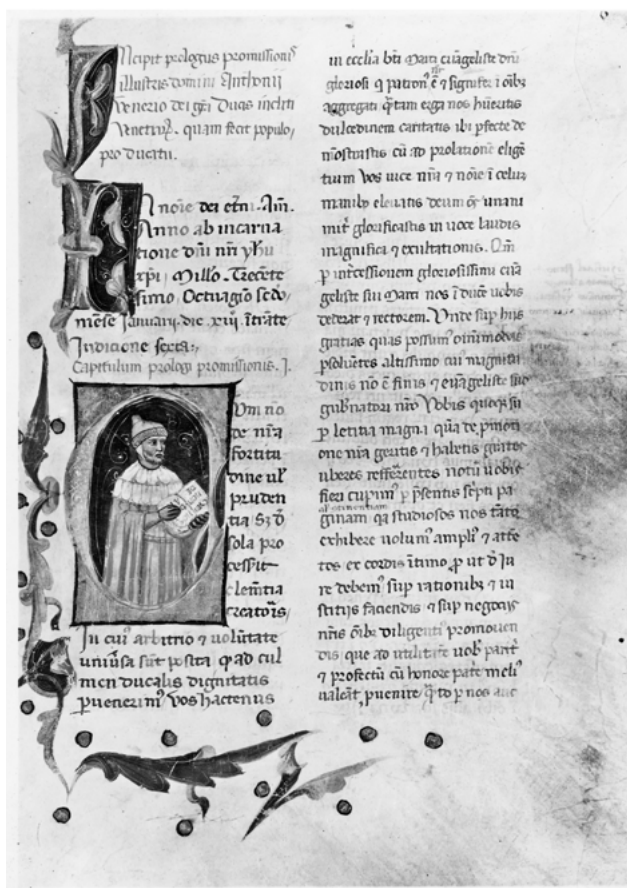 Incipit prologus promissionis
illustris domini Anthonii
Venerio dei gra Ducis incliti
Venetiar. quam fecit populo
pro ducatu.
In noie dei etni. Am.
Anno ab incarna
tione dni nri yhu
xpi. Millo. Trecente
simo Octuagio sedo
mense Ianuarii. die xiii. itrate
Indicione sexta.
Capitulum prologi promissionis. I.
Cum no
de nra
fortitu
dine ul
pruden
tia sz d
sola pro
cessit
clemtia
creatoris,
In cui arbitrio ⁊ volutate
univsa sut posita q ad cul
men ducalis dignitatis
pvenerim vos hactenus
in ecclia bti Marci evageliste dni
gloriosi q patron
aggregati qtam erga nos hueritis
dulcedinem caritatis ibi pfecte de
mostrastis cu ad prolatione elige
tium vos vice nra ⁊ noie i celum
manibz elevatis deum
mit glorificastis in voce laudis
magnifica ⁊ exultationis.
p intcessionem gloriosissimi eva
geliste sui Marci nos i duce vobis
dederat ⁊ rectorem. Unde sup hiis
gratias quas possum omimodas
psolvetes altissimo cui magnitu
dinis no e finis ⁊ evageliste suo
gubnatori nro Vobis
p letitia magna qua de pmoti
one nra geritis ⁊ habetis
uberes refferentes notu vobis
fieri cupim p psentis scpti pa
ginam qa studiosos nos
exhibere volum ampli ⁊ atte
tos ex cordis itimo p ut d iu
re debem sup rationibz ⁊ iu
stitiis faciendis ⁊ sup negociis
nris oibz diligenti promoven
dis que ad utilitate vob
⁊ profectu cu honore pate meli
valeat pvenire qtd p nos